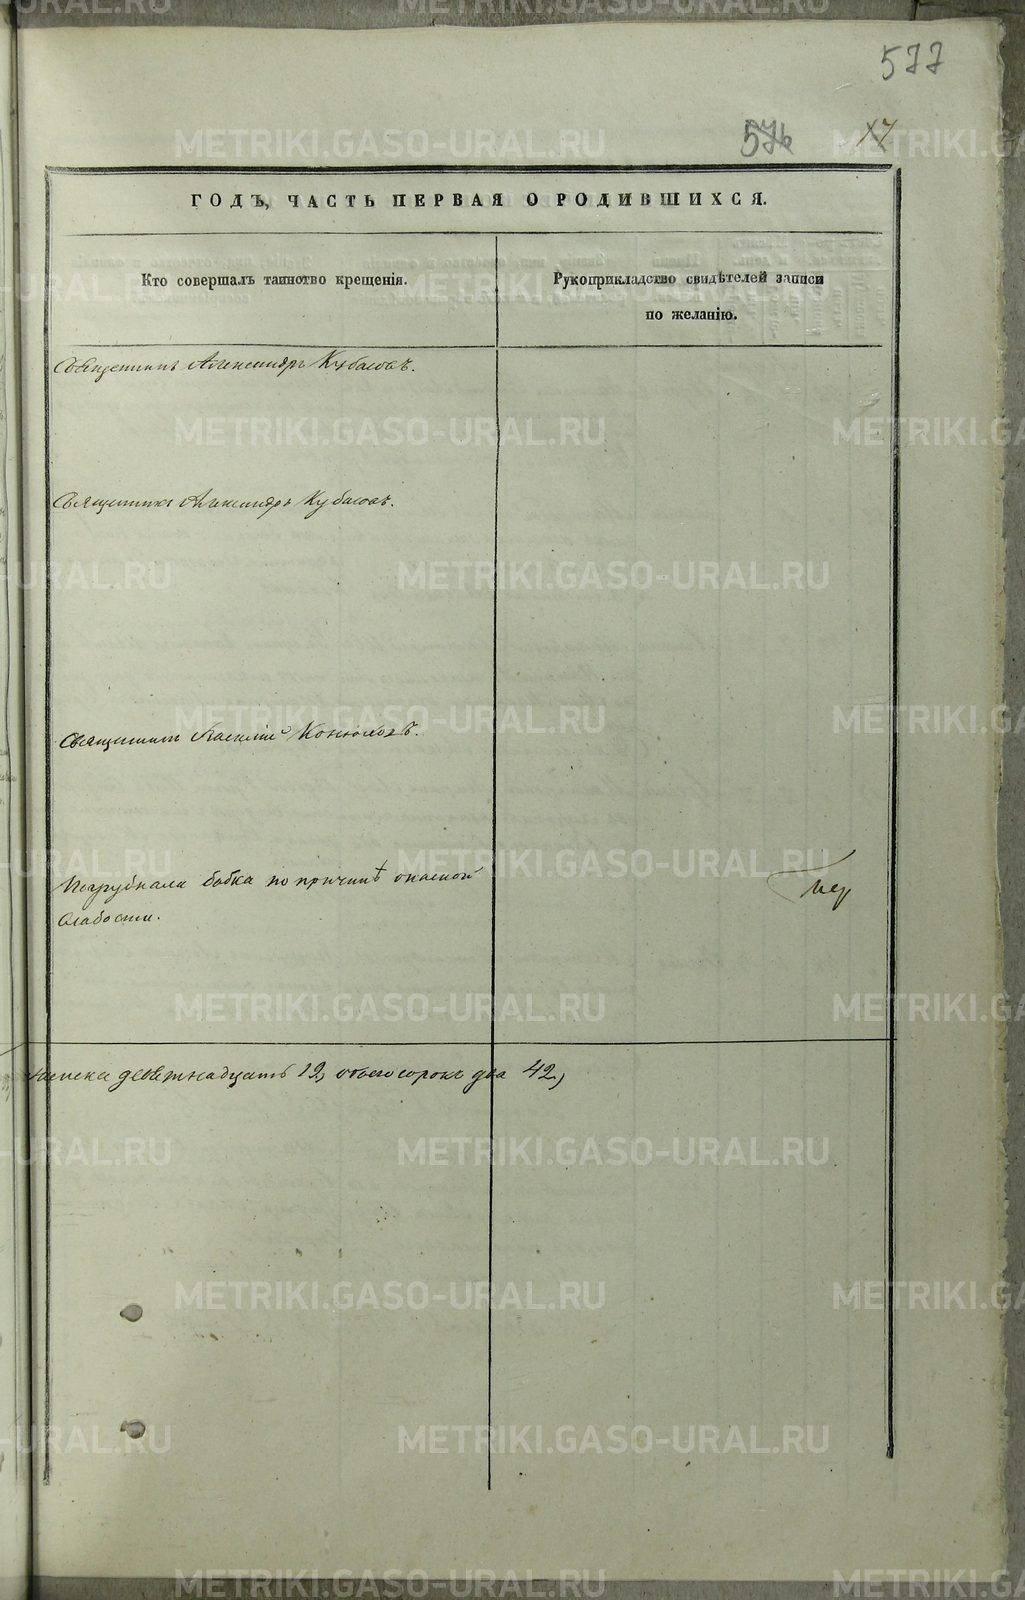 577
576 17
ГОДЪ, ЧАСТЬ ПЕРВАЯ О РОДИВШИХСЯ.
Кто совершалъ таинство крещенія.
Рукоприкладство свидѣтелей записи
по желанію.
Священникъ Александръ Кубасовъ.
Священникъ Александръ Кубасовъ.
Священникъ Василій Конюховъ.
Погружала бабка по причинѣ опасной
слабости.
женска девятнадцать 19, обоего сорокъ два 42,
METRIKI.GASO-URAL.RU